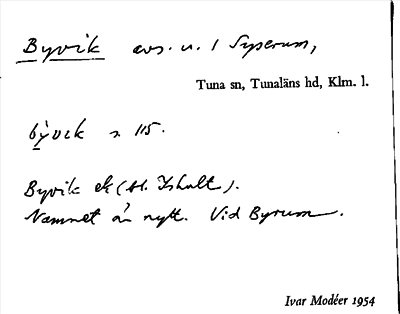 Byvik avs. u. 1 Syserum,
Tuna sn, Tunaläns hd, Klm. l.
bývik s. 115.
Byvik ek (st. Ishult).
Namnet är nytt. Vid Byrum.
Ivar Modéer 1954